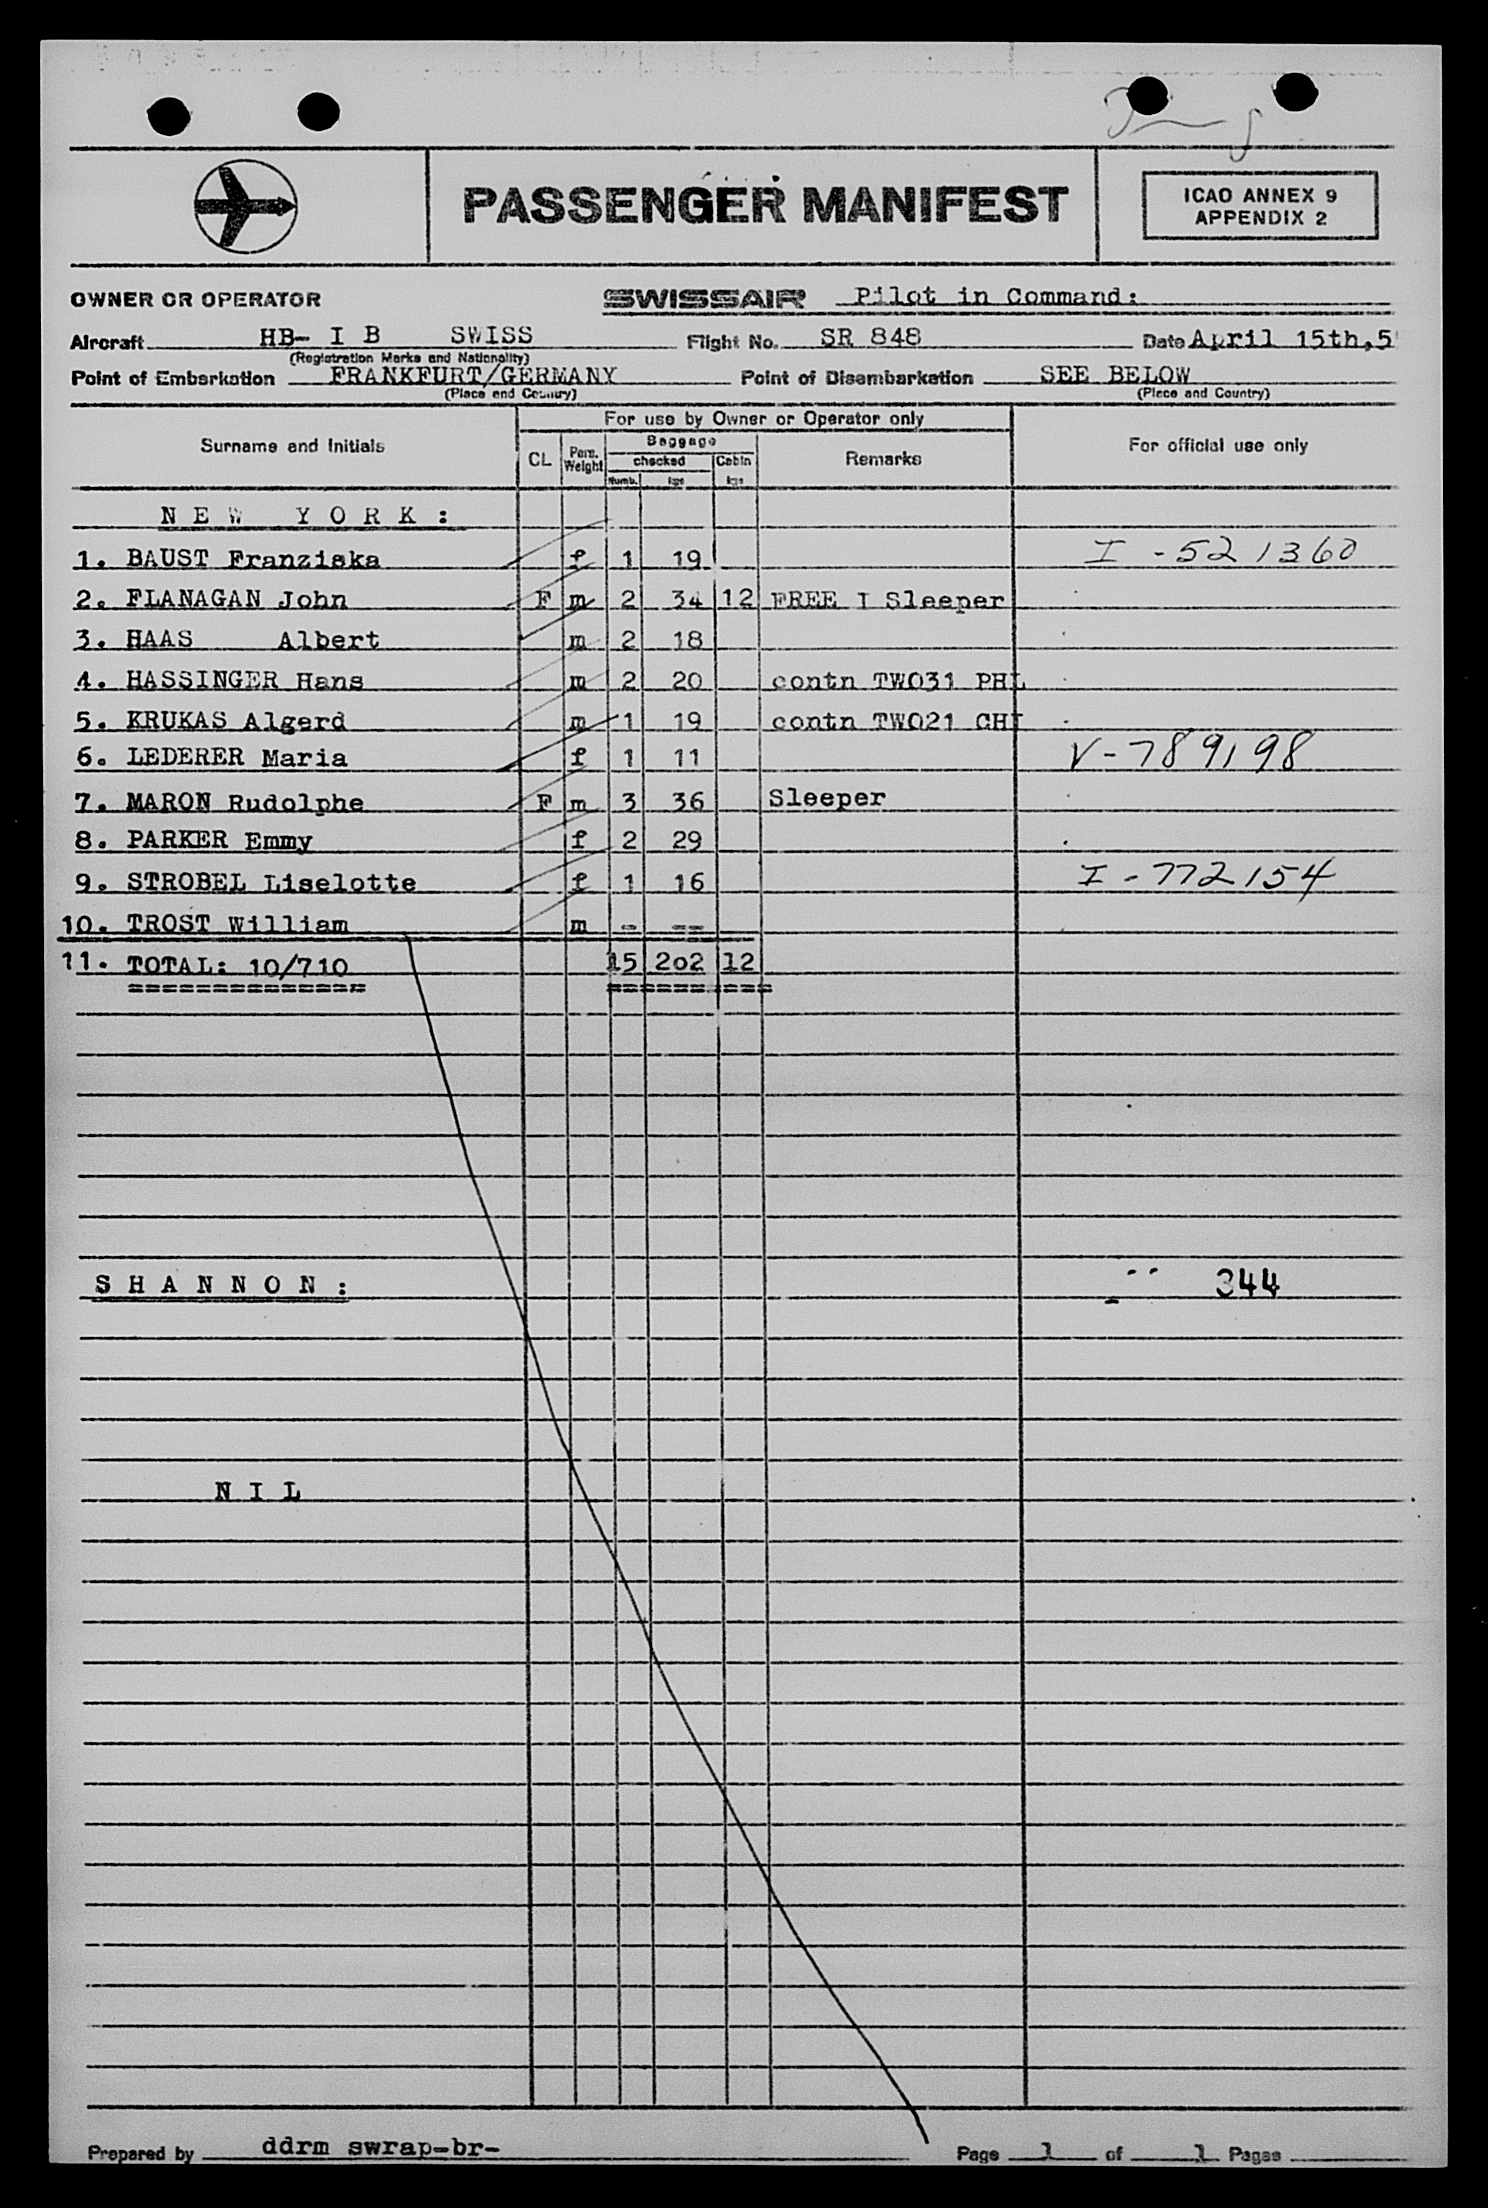 PASSENGER MANIFEST
ICAO ANNEX 9
APPENDIX 2
OWNER OR OPERATOR SWISSAIR Pilot in Command:
Aircraft HB- I B SWISS Flight No. SR 848 Date April 15th,5
(Registration Marks and Nationality)
Point of Embarkation FRANKFURT/GERMANY Point of Disembarkation SEE BELOW
(Place and Country) (Place and Country)
For use by Owner or Operator only
Surname and Initials CL Pers. Weight Baggage checked Numb. kgs Cabin kgs Remarks For official use only
N E W Y O R K :
1. BAUST Franziska f 1 19 I -521360
2. FLANAGAN John F m 2 34 12 FREE I Sleeper
3. HAAS Albert m 2 18
4. HASSINGER Hans m 2 20 contn TWO31 PHL
5. KRUKAS Algerd m 1 19 contn TWO21 CHI
6. LEDERER Maria f 1 11 V-789198
7. MARON Rudolphe F m 3 36 Sleeper
8. PARKER Emmy f 2 29
9. STROBEL Liselotte f 1 16 I-772154
10. TROST William m - --
11. TOTAL: 10/710 15 202 12
============== ==========
S H A N N O N : 344
N I L
Prepared by ddrm swrap-br- Page 1 of 1 Pages